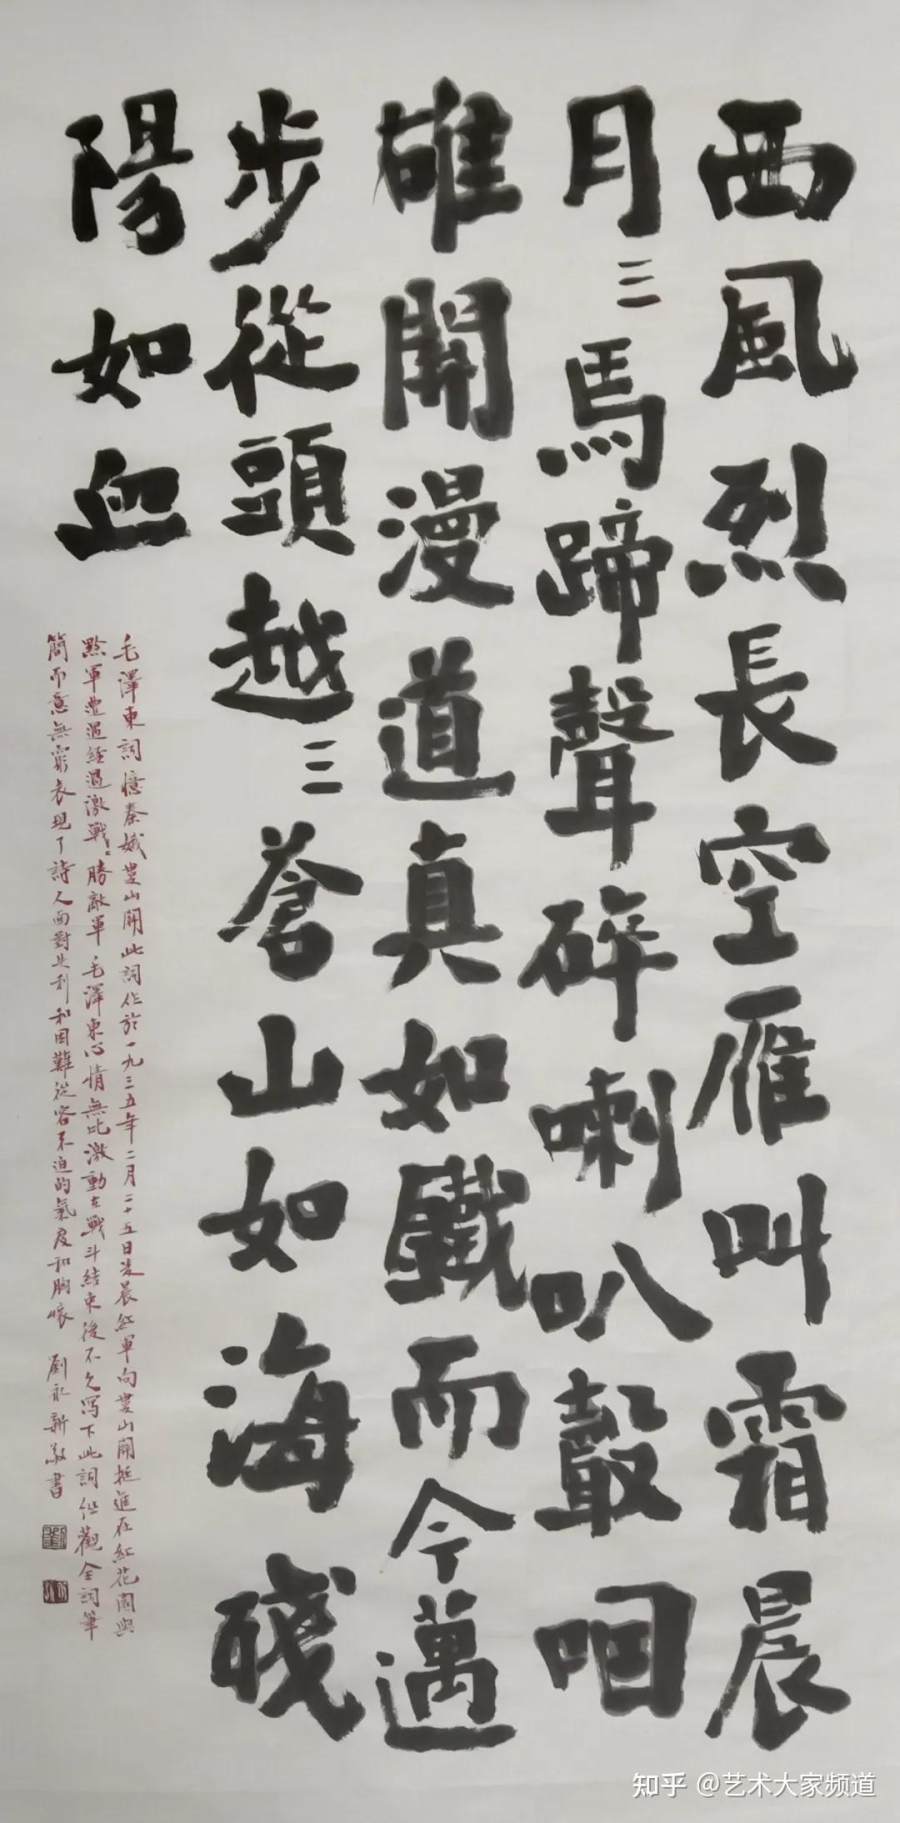 西風烈長空雁叫霜晨
月三馬蹄聲碎喇叭聲咽
雄關漫道真如鐵而今邁
步從頭越三蒼山如海殘
陽如血
毛澤東詞憶秦娥婁山關此詞作於一九三五年二月二十五日凌晨紅軍向婁山關挺進在紅花園與
黔軍遭遇經過激戰戰勝敵軍毛澤東心情無比激動在戰斗結束後不久寫下此詞作觀全詞筆
簡而意無窮表現了詩人面對失利和困難從容不迫的氣度和胸懷 劉永新敬書
知乎 @艺术大家频道